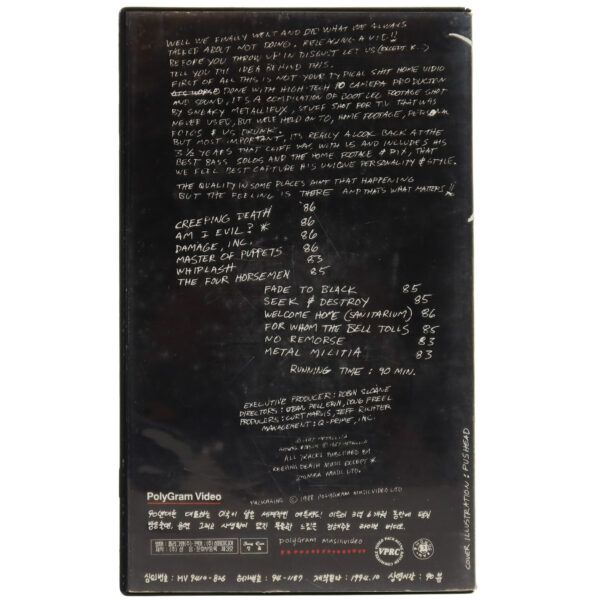 WELL WE FINALLY WENT AND DID WHAT WE ALWAYS
TALKED ABOUT NOT DOING. RELEASING A VID!!
BEFORE YOU THROW UP IN DISGUST LET US (EXCEPT K..)
TELL YOU THE IDEA BEHIND THIS.
FIRST OF ALL THIS IS NOT YOUR TYPICAL SHIT HOME VIDIO
DONE WITH HIGH-TECH 10 CAMERA PRODUCTION
AND SOUND, IT'S A COMPILATION OF BOOTLEG FOOTAGE SHOT
BY SNEAKY METALLIFUX, STUFF SHOT FOR T.V. THAT WAS
NEVER USED, BUT WE'VE HELD ON TO, HOME FOOTAGE, PERSONAL
FOTOS & US DRUNK.
BUT MOST IMPORTANT, IT'S REALLY A LOOK BACK AT THE
3½ YEARS THAT CLIFF WAS WITH US AND INCLUDES HIS
BEST BASS SOLOS AND THE HOME FOOTAGE & PIX, THAT
WE FEEL BEST CAPTURE HIS UNIQUE PERSONALITY & STYLE.
THE QUALITY IN SOME PLACES AINT THAT HAPPENING
BUT THE FEELING IS THERE AND THAT'S WHAT MATTERS!!
CREEPING DEATH '86
AM I EVIL? * 86
DAMAGE, INC. 86
MASTER OF PUPPETS 86
WHIPLASH 83
THE FOUR HORSEMEN 85
FADE TO BLACK 85
SEEK & DESTROY 85
WELCOME HOME (SANITARIUM) 86
FOR WHOM THE BELL TOLLS 85
NO REMORSE 83
METAL MILITIA 83
RUNNING TIME : 90 MIN.
EXECUTIVE PRODUCER : ROBIN SLOANE
DIRECTORS : JEAN PELLERIN, DOUG FREEL
PRODUCERS : CURT MARVIS, JEFF RICHTER
MANAGEMENT : Q-PRIME, INC.
© 1987 METALLICA
ALL TRACKS PUBLISHED BY
CREEPING DEATH MUSIC EXCEPT *
MUSIC LTD.
PACKAGING © 1988 POLYGRAM MUSIC VIDEO LTD
COVER ILLUSTRATION : PUSHEAD
PolyGram Video
polygram musicvideo
VPRC
심의번호 : MV 9410-825 94-1187 제작일자 : 1994.10 상영시간 : 90분